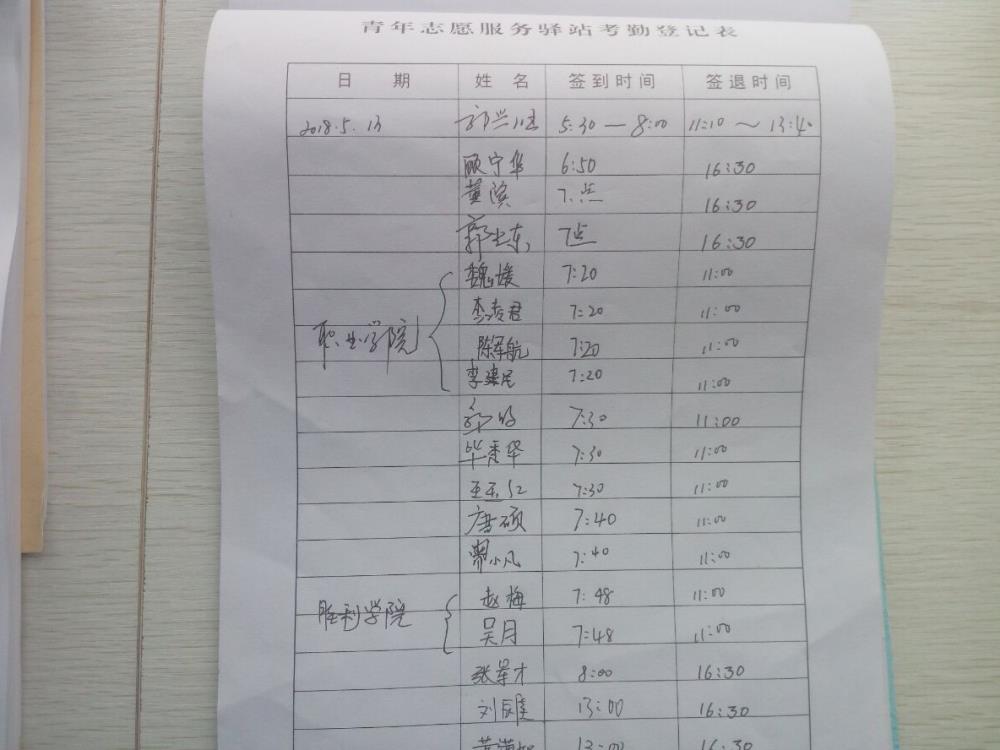 青年志愿服务驿站考勤登记表
日 期 姓 名 签到时间 签退时间
2018.5.13 5:30 — 8:00 11:10 ～ 13:40
顾宁华 6:50 16:30
董滨 7.点 16:30
郭士东 7点 16:30
魏媛 7:20 11:00
李凌君 7:20 11:00
职业学院 陈军航 7:20 11:00
李建民 7:20 11:00
7:30 11:00
毕秀华 7:30 11:00
王玉红 7:30 11:00
唐硕 7:40 11:00
小凡 7:40 11:00
胜利学院 赵梅 7:48 11:00
吴月 7:48 11:00
张军才 8:00 16:30
刘辰 13:00 16:30
13:00 16:30